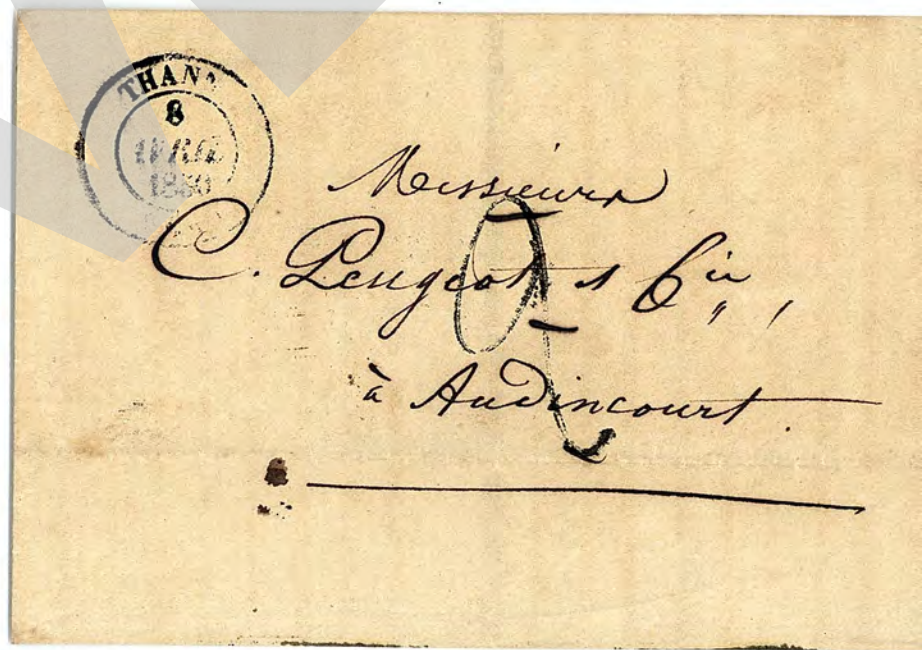 THANN
8
AVRIL
1850
Messieurs
C. Peugeot & Cie,
à Audincourt.